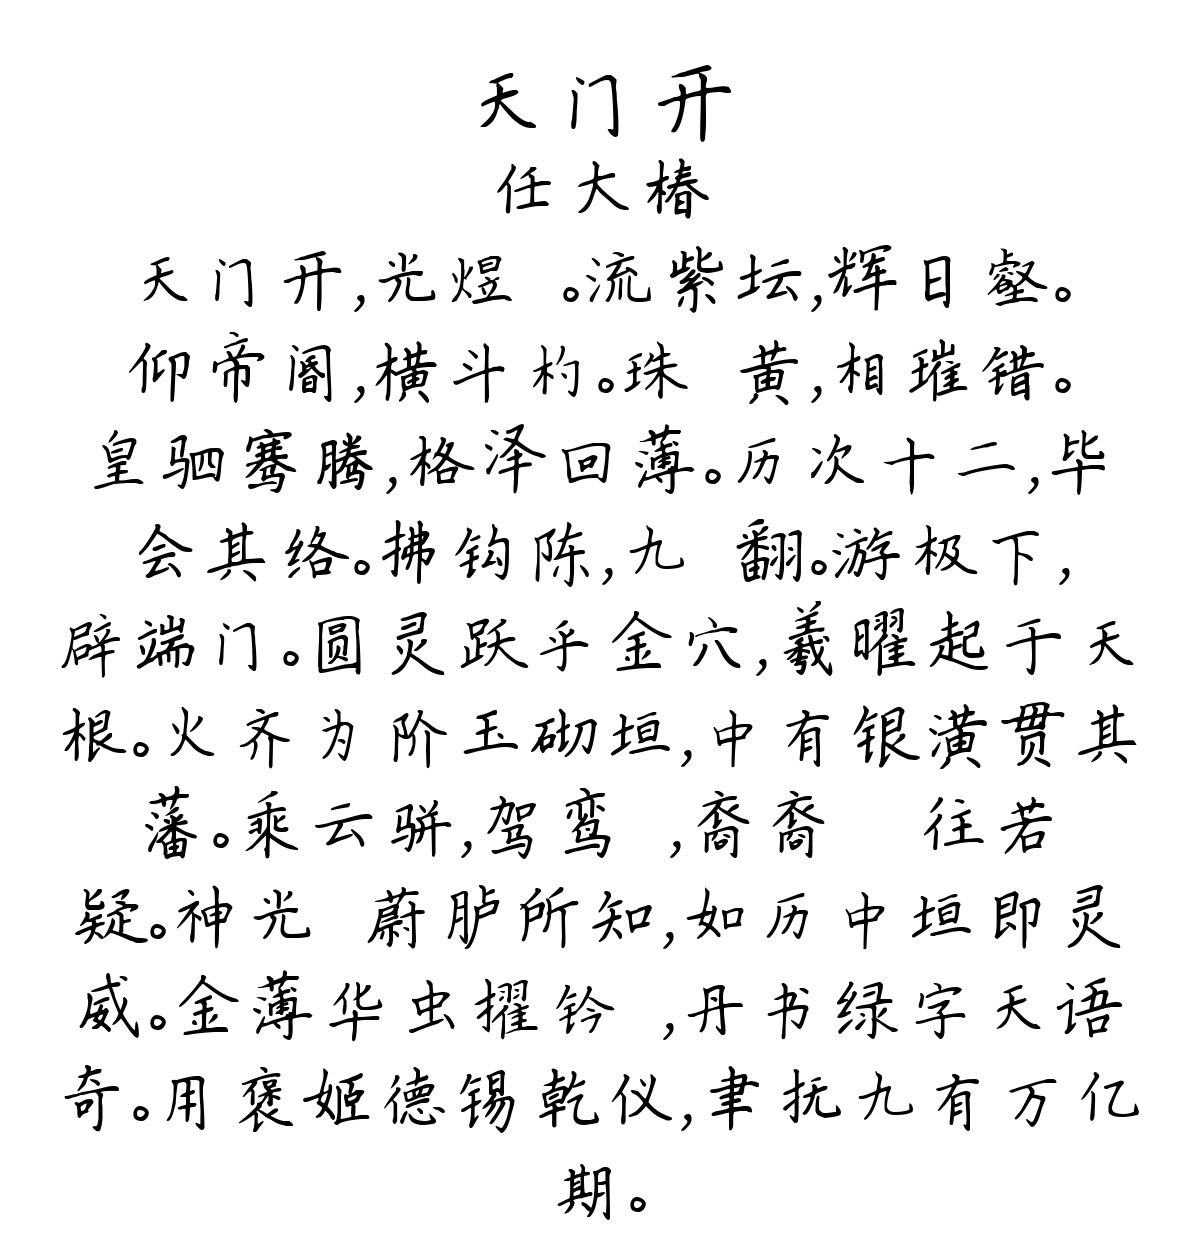 天门开
任大椿
天门开,光煜 。流紫坛,辉日壑。
仰帝阍,横斗杓。珠 黄,相璀错。
皇驷骞腾,格泽回薄。历次十二,毕
会其络。拂钩陈,九 翻。游极下,
辟端门。圆灵跃乎金穴,羲曜起于天
根。火齐为阶玉砌垣,中有银潢贯其
藩。乘云骈,驾鸾 ,裔裔 往若
疑。神光 蔚胪所知,如历中垣即灵
威。金薄华虫擢钤 ,丹书绿字天语
奇。用褒姬德锡乾仪,聿抚九有万亿
期。